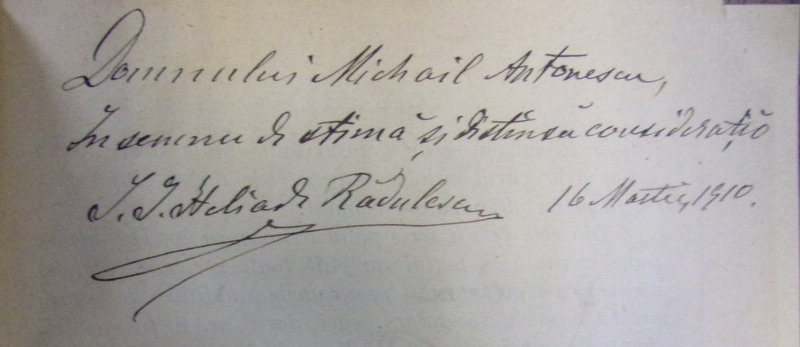 Domnului Michail Antonescu,
În semnu de stimă și distinsă considerație
I. I. Heliade Rădulescu 16 Martie, 1910.